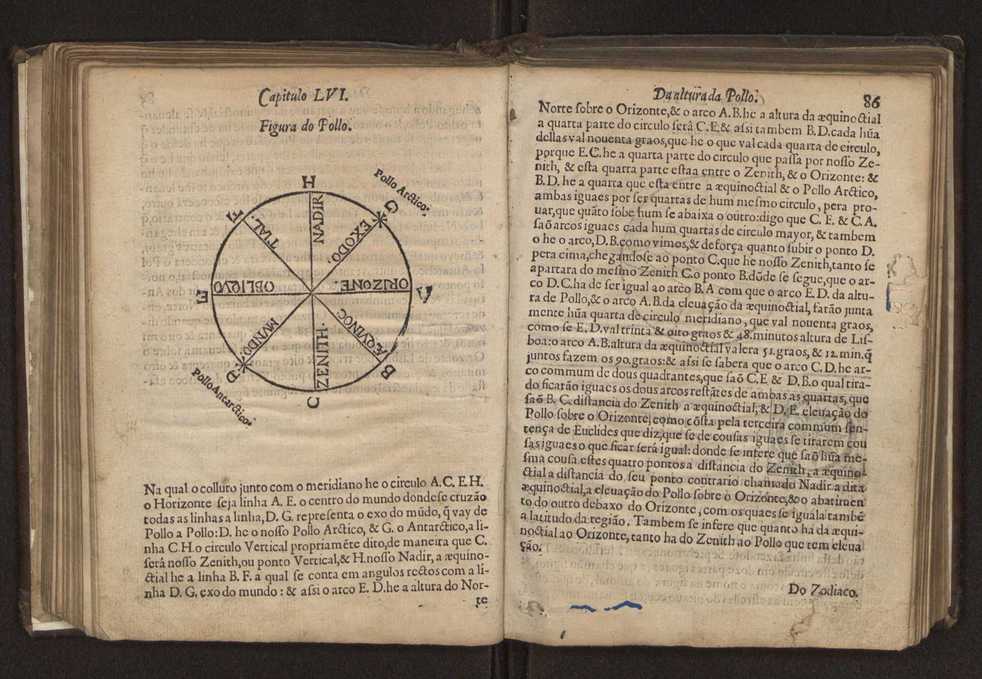 Capitulo LVI.
Figura do Pollo.
H
Pollo Arctico.
F
G
TIAL.
NADIR
EXODO.
E
OBLIQVO
ORIZONE.
A
MVNDO.
ZENITH.
ÆQVINOC
D.
B
Pollo Antarctico.
C
Na qual o colluro junto com o meridiano he o circulo A.C.E.H.
o Horizonte seja linha A. E. o centro do mundo donde se cruzão
todas as linhas a linha, D. G. representa o exo do mũdo, q̃ vay de
Pollo a Pollo: D. he o nosso Pollo Arctico, & G. o Antarctico, a li-
nha C H. o circulo Vertical propriamẽte dito, de maneira que C.
será nosso Zenith, ou ponto Vertical, & H. nosso Nadir, a æquino-
ctial he a linha B. F. a qual se conta em angulos rectos com a li-
nha D. G. exo do mundo: & assi o arco E. D. he a altura do Nor-
te
Da altura da Pollo.
86
Norte sobre o Orizonte, & o arco A. B. he a altura da æquinoctial
a quarta parte do circulo será C. E. & assi tambem B. D. cada hũa
dellas val noventa graos, que he o que val cada quarta de circulo,
porque E. C. he a quarta parte do circulo que passa por nosso Ze-
nith, & esta quarta parte estaa entre o Zenith, & o Orizonte: &
B. D. he a quarta que esta entre a æquinoctial & o Pollo Arctico,
ambas iguaes por ser quartas de hum mesmo circulo, pera pro-
uar, que quãto sobe hum se abaixa o outro: digo que C. E. & C. A.
saõ arcos iguaes cada hum quartas de circulo mayor, & tambem
o he o arco, D. B. como vimos, & de força quanto subir o ponto D.
pera cima, chegandose ao ponto C. que he nosso Zenith, tanto se
apartara do mesmo Zenith C. o ponto B. dõde se segue, que o ar-
co D. C. ha de ser igual ao arco B. A com que o arco E. D. da altu-
ra de Pollo, & o arco A. B. da eleuação da æquinoctial, farão junta
mente hũa quarta de circulo meridiano, que val noventa graos,
como se E. D. val trinta & oito graos & 48. minutos altura de Lis-
boa: o arco A. B. altura da æquinoctial valera 51. graos, & 12. min. q̃
juntos fazem os 90. graos: & assi se sabera que o arco C. D. he ar-
co commum de dous quadrantes, que saõ C. E & D. B. o qual tira-
do ficarão iguaes os dous arcos restãtes de ambas as quartas, que
saõ B. C. distancia do Zenith a æquinoctial, & D. E. eleuação do
Pollo sobre o Orizonte, como cõsta pela terceira commum sen-
tença de Euclides que diz, que se de cousas iguaes se tirarem cou
sas iguaes o que ficar será igual: donde se infere que saõ hũa me-
sma cousa estes quatro pontos a distancia do Zenith, a æquino-
ctial a distancia do seu ponto contrario chamado Nadir a dita
æquinoctial, a eleuação do Pollo sobre o Orizonte, & o abatimen
to do outro debaxo do Orizonte, com os quaes se iguala tambẽ
a latitudo da região. Tambem se infere que quanto ha da æqui-
noctial ao Orizonte, tanto ha do Zenith ao Pollo que tem eleua
ção.
Do Zodiaco.